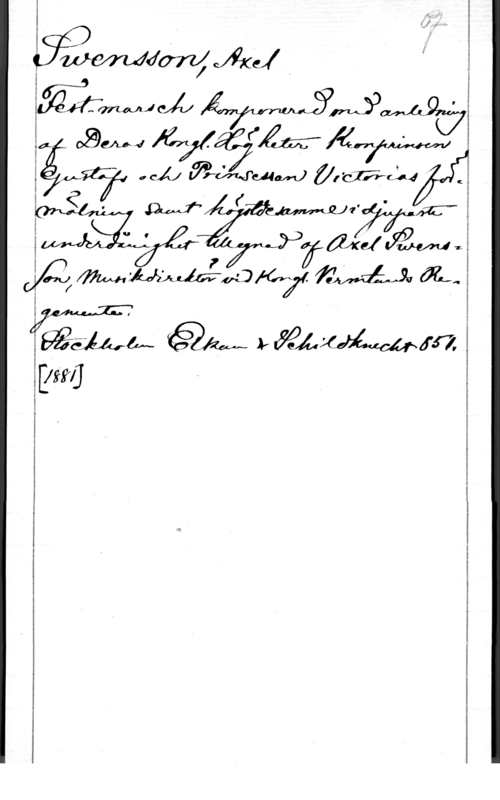 67
Swensson, Axel
Fest-marsch komponerad med anledning
af Deras Kongl. Högheter Kronprinsen
Gustafs och Prinsessan Victorias för-
mälning samt högstdesamme i djupaste
underdånighet tillegnad af Axel Swens-
son, Musikdirektör vid Kongl. Vermlands Re-
gemente.
Stockholm Elkan & Schildknecht 851.
[1881]